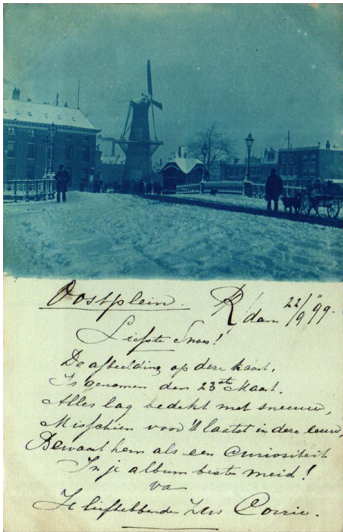 Oostplein. R'dam 22/9 '99.
Liefste Snoes!
De afbeelding op deze kaart,
Is genomen den 23ste Maart.
Alles lag bedekt met sneeuw,
Misschien voor 't laatst in deze eeuw,
Bewaar hem als een curiositeit
In je album beste meid!
va
Je liefhebbende Zus Corrie.